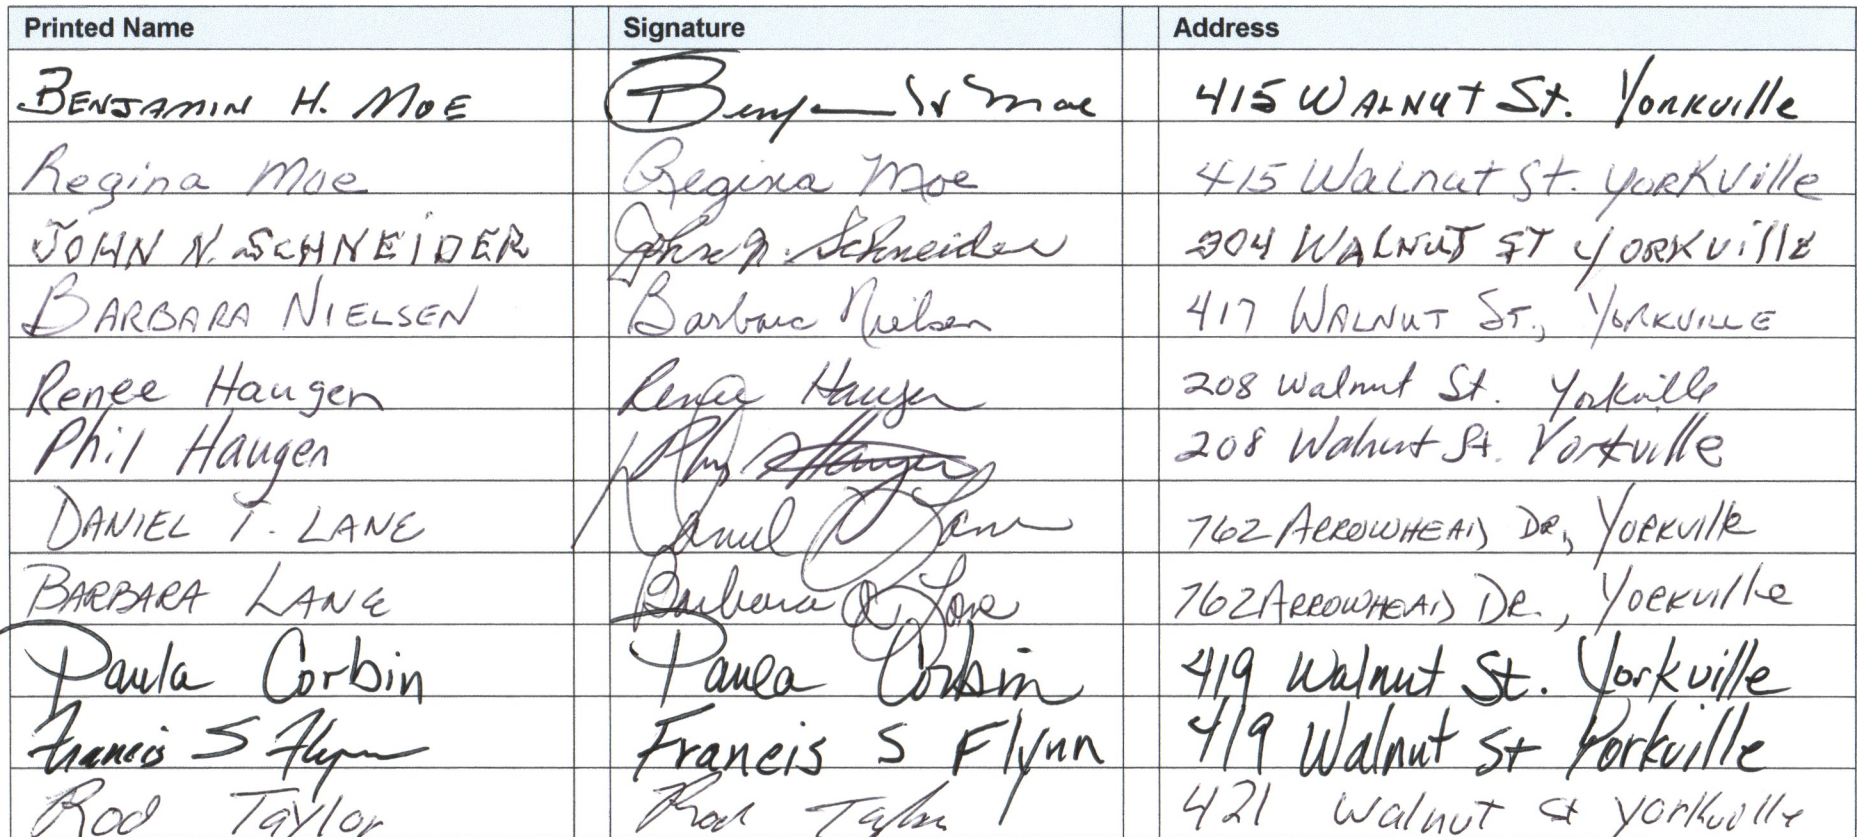 Printed Name Signature Address
BENJAMIN H. MOE Benjamin H Moe 415 WALNUT St. Yorkville
Regina Moe Regina Moe 415 Walnut St. YORKVille
JOHN N. SCHNEIDER John N. Schneider 204 WALNUT ST YORKVillE
BARBARA NIELSEN Barbara Nielsen 417 WALNUT ST., YORKVILLE
Renee Haugen Renee Haugen 208 Walnut St. Yorkville
Phil Haugen Phil Haugen 208 Walnut St. Yorkville
DANIEL T. LANE Daniel T Lane 762 ARROWHEAD DR, YORKVIlle
BARBARA LANE Barbara Lane 762 ARROWHEAD DR., YORKVIlle
Paula Corbin Paula Corbin 419 Walnut St. Yorkville
Francis S Flynn Francis S Flynn 419 Walnut St Yorkville
Rod Taylor Rod Taylor 421 Walnut St Yorkville